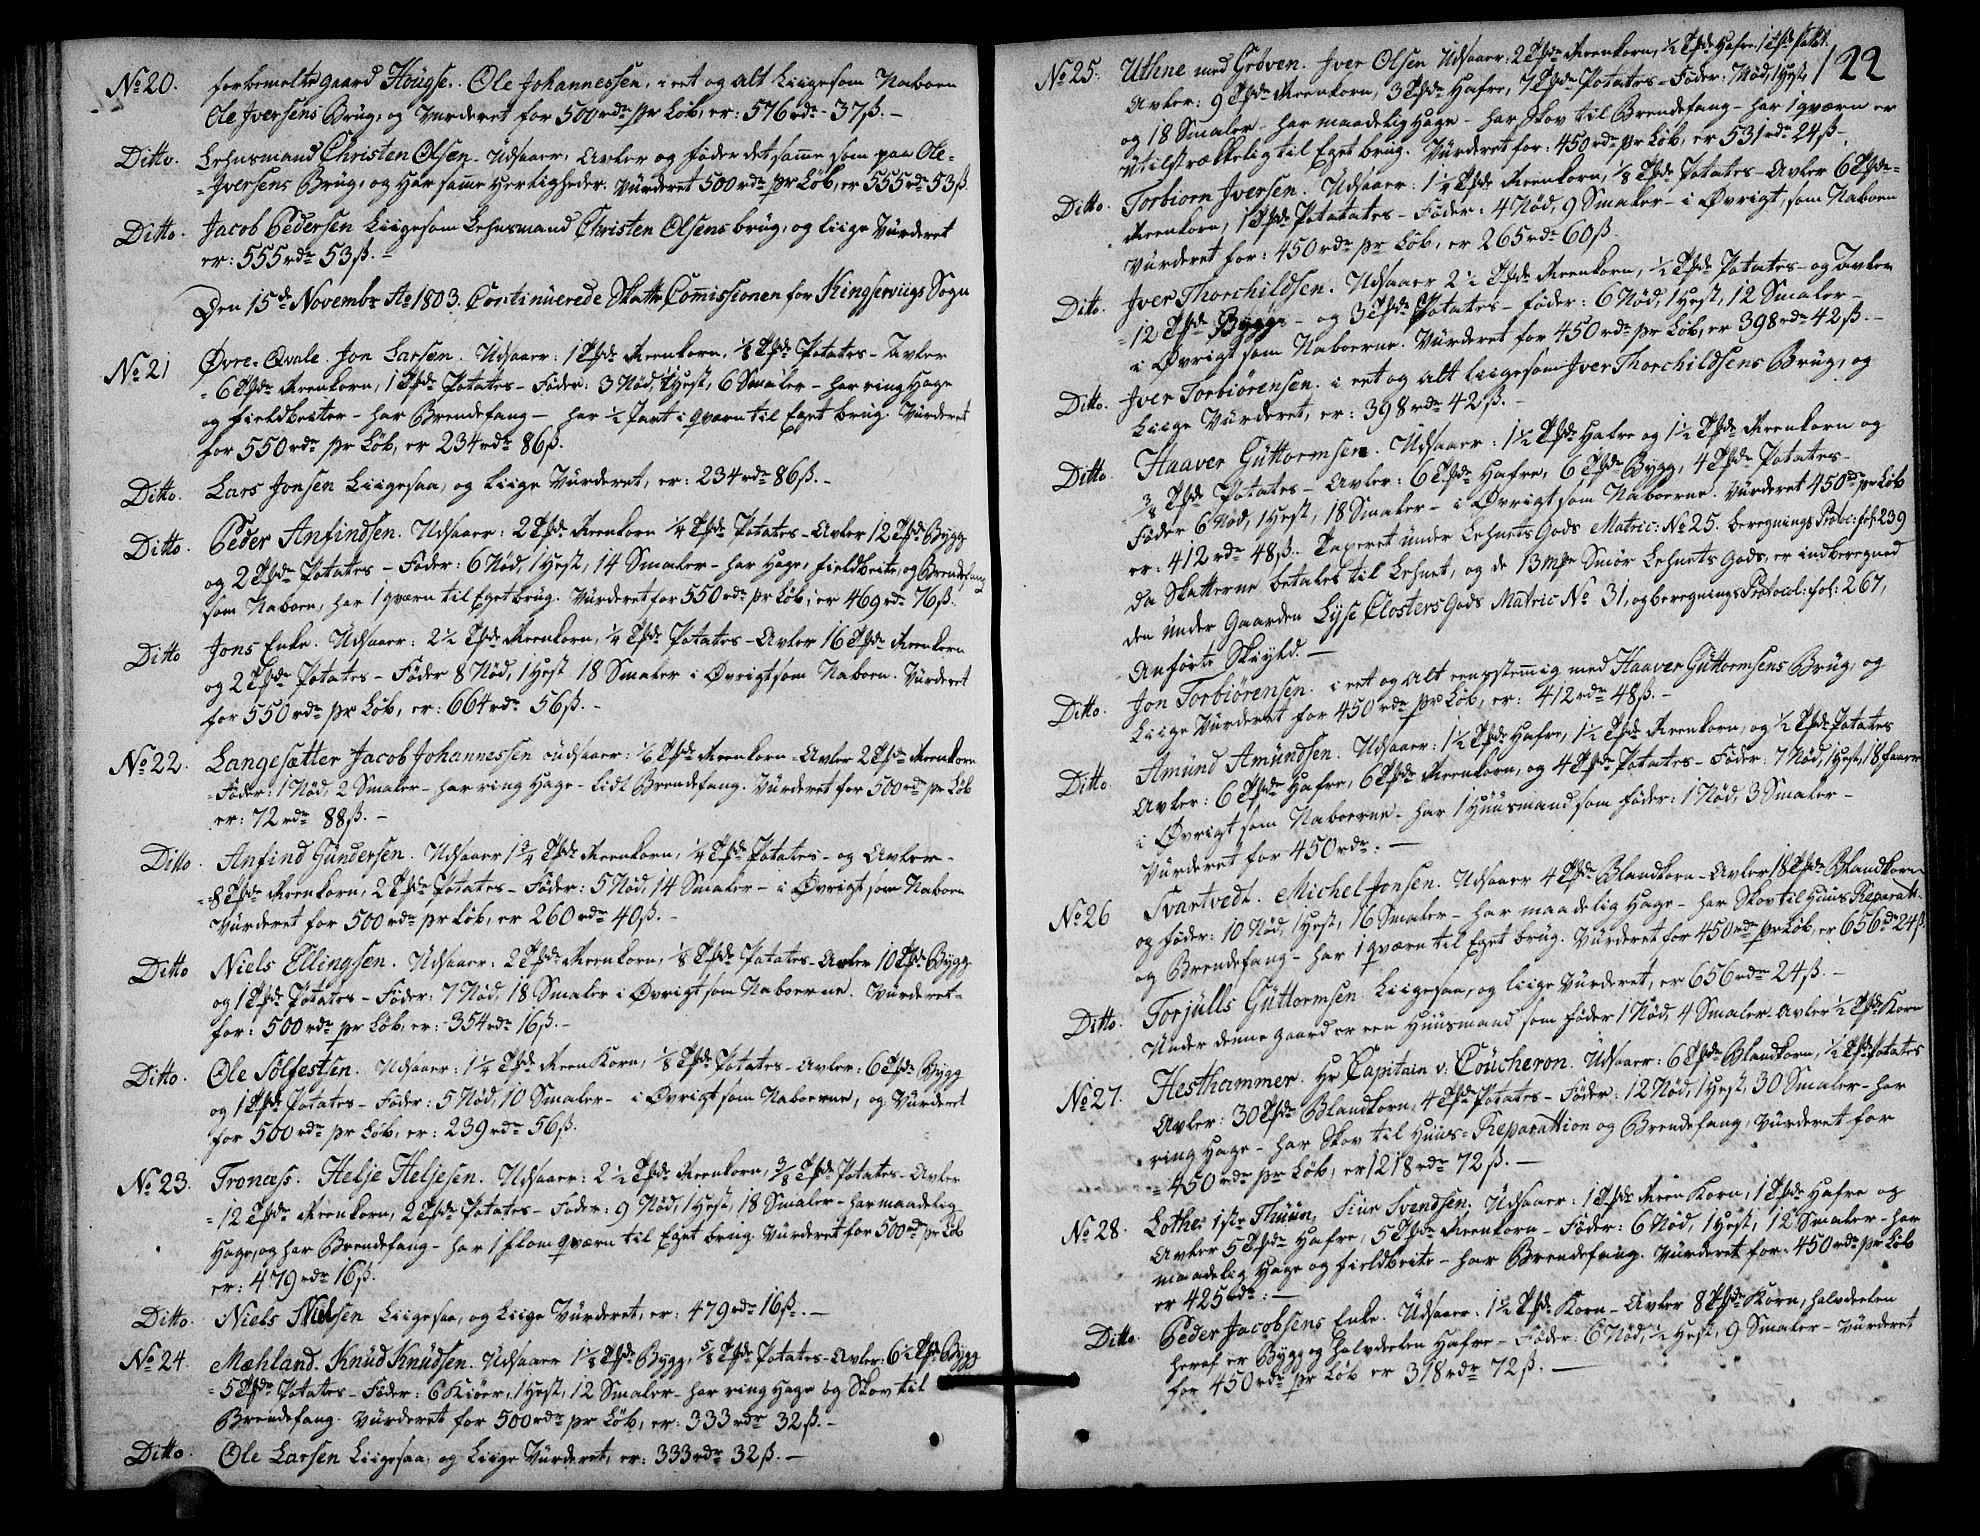 No 20. forbemelte gaard Hougse. Ole Johannessen, i eet og alt Liigesom Naboen
Ole Iversens Brug, og Vurderet for 500 rdr pr Löb, er: 576 rdr 37 ß. –
Ditto. Lehnsmand Christen Olsen – Udsaaer, Avler og föder det samme som paa Ole-
Iversens Brug, og har samme Herligheder. Vurderet 500 rdr pr Löb, er 555 rdr 53 ß.
Ditto. Jacob Pedersen Liigesom Lehnsmand Christen Olsens brug, og liige Vurderet
er: 555 rdr 53 ß. –
Den 15de Novembr Ao 1803. Continuerede Skatte Commissionen for Kingservigs Sogn
No 21 Øvre-Qvale. Jon Larsen. Udsaaer: 1 Tønde Reenkorn, 1/8 Tønde Potates – Avler
6 Tønder Reenkorn, 1 Tønde Potates – Föder: 3 Nöd, 1 Hest, 6 Smaler – har ring Hage
og fieldbeiter – har Brendefang – har 1/2 Part i qværn til Eget brug. Vurderet
for 550 rdr pr Löb, er 234 rdr 86 ß.
Ditto. Lars Jonsen Liigesaa, og liige Vurderet, er: 234 rdr 86 ß. –
Ditto. Peder Anfindsen. Udsaaer: 2 Tønder Reenkorn 1/4 Tønde Potates – Avler 12 Tønder Bygg
og 2 Tønder Potates – Föder: 6 Nöd, 1 Hest, 14 Smaler – har Hage, fieldbeite, og Brendefang
som Naboen, har 1 qværn til Eget brug. Vurderet for 550 rdr pr Löb, er 469 rdr 76 ß.
Ditto Jons Enke. Udsaaer: 2 1/2 Tønde Reenkorn, 1/4 Tønde Potates – Avler 16 Tønder Reenkorn
og 2 Tønder Potates – Föder 8 Nöd, 1 Hest 18 Smaler i Øvrigt som Naboen. Vurderet
for 550 rdr pr Löb, er: 664 rdr 56 ß. –
No 22. Langesætter Jacob Johannessen udsaaer: 1/6 Tønde Reenkorn – Avler 2 Tønder Reenkorn
Föder: 1 Nöd, 2 Smaler – har ring Hage – lidt Brendefang. Vurderet for 500 rdr pr Löb
er: 72 rdr 88 ß. –
Ditto. Anfind Gundersen. Udsaaer 1 3/4 Tønde Reenkorn, 1/4 Tønde Potates – og Avler –
8 Tønder Reenkorn, 2 Tønder Potates – Föder: 5 Nöd, 14 Smaler – i Øvrigt som Naboen
Vurderet for 500 rdr pr Löb, er 260 rdr 40 ß. –
Ditto Niels Ellingsen. Udsaaer: 2 Tønder Reenkorn, 1/8 Tønde Potates – Avler 10 Tønder Bygg
og 1 Tønde Potates – Föder: 7 Nöd, 18 Smaler i Øvrigt som Naboerne. Vurderet
for: 500 rdr pr Löb, er: 354 rdr 16 ß. –
Ditto. Ole Solfestsen. Udsaaer: 1 1/4 Tønde Reen Korn, 1/8 Tønde Potates – Avler: 6 Tønder Bygg
og 1 Tønde Potates – Föder: 5 Nöd, 10 Smaler – i Øvrigt som Naboerne, og Vurderet
for 500 rdr pr Löb, er: 239 rdr 56 ß.
No 23. Tronæss. Helje Heljesen. Udsaaer: 2 1/2 Tønde Reenkorn, 3/8 Tønde Potates – Avler
12 Tønder Reenkorn, 2 Tønder Potates – Föder: 9 Nöd, 1 Hest, 18 Smaler – har maadelig
Hage, og har Brendefang – har 1 flom qværn til Eget brug. Vurderet for 500 rdr pr Löb
er: 479 rdr 16 ß.
Ditto. Niels Nielsen Liigesaa, og Liige Vurderet, er: 479 rdr 16 ß. –
No 24. Mæhland. Knud Knudsen. Udsaaer 1 1/8 Tønde Bygg, 5/8 Tønde Potates – Avler: 6 1/2 Tønde Bygg
5 Tønder Potates – Föder: 6 Kiöer, 1 Hest, 12 Smaler – har ring Hage og Skov til
Brendefang. Vurderet for 500 rdr pr Löb, er: 333 rdr 32 ß. –
Ditto. Ole Larsen Liigesaa, og Liige Vurderet, er: 333 rdr 32 ß. –
122
No 25. Uthne med Gröven. Iver Olsen Udsaaer: 2 Tønder Reenkorn, 1/2 Tønde Hafre, 1 Tønde Potat.
Avler: 9 Tønder Reenkorn, 3 Tønder Hafre, 7 Tønder Potates – Föder: Nöd, 1 Hest,
og 18 Smaler – har maadelig Hage – har Skov til Brendefang – har 1 qværn er
utilstrækkelig til Eget brug. Vurderet for: 450 rdr pr Löb, er 531 rdr 24 ß –
Ditto. Torbiorn Iversen. Udsaaer: 1 1/4 Tønde Reenkorn, 1/8 Tønde Potates – Avler 6 Tønder
Reenkorn, 1 Tønde Potatates – Föder: 4 Nöd, 9 Smaler – i Øvrigt, som Naboen
Vurderet for: 450 rdr pr Löb, er 265 rdr 60 ß.
Ditto. Iver Thorchildsen. Udsaaer 2 1/2 Tønde Reenkorn, 1/2 Tønde Potates – og Avler
12 Tønder Bygg – og 3 Tønder Potates – föder: 6 Nöd, 1 Hest, 12 Smaler –
i Øvrigt som Naboerne. Vurderet for 450 rdr pr Löb, er 398 rdr 42 ß. –
Ditto. Iver Torbiörensen. i eet og alt liigesom Iver Thorchildsens Brug, og
Liige Vurderet, er: 398 rdr 42 ß. –
Ditto. Haaver Guttormsen. Udsaaer: 1 1/2 Tønde Hafre og 1 1/2 Tønde Reenkorn og
3/8 Tønde Potates – Avler: 6 Tønder Hafre, 6 Tønder Bygg, 4 Tønder Potates –
Föder 6 Nöd, 1 Hest, 18 Smaler – i Øvrigt som Naboerne. Vurderet 450 rdr pr Löb
er: 412 rdr 48 ß. Taxeret under Lehnets Gods Matric: No 25. beregnings Protoc: fol: 239
da Skatterne betales til Lehnet, og de 13 mrk Smör Lehnets Gods, er indberegned
den under Gaarden Lyse Closters Gods Matric No 31, og beregnings Protocol: fol: 267,
Anförte Skyld. –
Ditto. Jon Torbiörensen. i eet og alt eenstemig med Haaver Guttormsens Brug, og
Liige Vurderet for 450 rdr pr Löb, er: 412 rdr 48 ß. –
Ditto Amund Amundsen. Udsaaer: 1 1/2 Tønde Hafre, 1 1/2 Tønde Reenkorn, og 1/2 Tønde Potates
Avler: 6 Tønder Hafre, 6 Tønder Reenkorn, og 4 Tønder Potates – Föder: 7 Nöd, 1 Hest, 18 faarer
i Øvrigt som Naboerne – har 1 Huusmand som föder: 1 Nöd, 3 Smaler –
Vurderet for 450 rdr. –
No 26 Tvartvedt. Michel Jonsen. Udsaaer 4 Tønder Blandkorn – Avler 18 Tønder Blandkorn
og föder: 10 Nöd, 1 Hest, 16 Smaler – har maadelig Hage – har Skov til Huus Reparatt.
og Brendefang – har 1 qværn til Eget brug. Vurderet for 450 rdr pr Löb, er 656 rdr 24 ß.
Ditto. Torjulls Guttormsen. Liigesaa, og liige Vurderet, er 656 rdr 24 ß. –
Under denne gaard er een Huusmand som föder 1 Nöd, 4 Smaler – Avler 1/2 Tønde Korn
No 27. Hesthammer. Hr Capitain v. Coucheron. Udsaaer: 6 Tønder Blandkorn, 1/2 Tønde Potates
Avler: 30 Tønder Blandkorn, 4 Tønder Potates – Föder: 12 Nöd, 1 Hest, 30 Smaler – har
ring Hage – har Skov til Huus-Reparattion og Brendefang, Vurderet for
450 rdr pr Löb, er 1218 rdr 72 ß. –
No 28. Lothe, 1ste Thuun, Siur Svendsen. Udsaaer: 1 Tønde Reen Korn, 1 Tønde Hafre og
Avler 5 Tønder Hafre, 5 Tønder Reenkorn – Föder: 6 Nöd, 1 Hest, 12 Smaler – har
maadelig Hage og fieldbeite – har Brendefang. Vurderet for: 450 rdr pr Löb
er 425 rdr: –
Ditto Peder Jacobsens Enke. Udsaaer: 1 1/2 Tønde Korn – Avler 8 Tønder Korn, halvdeelen
heraf er Bygg og halvdeelen Hafre – Föder: 6 Nöd, 1/2 Hest, 9 Smaler – Vurderet
for 450 rdr pr Löb er 318 rdr 72 ß. –